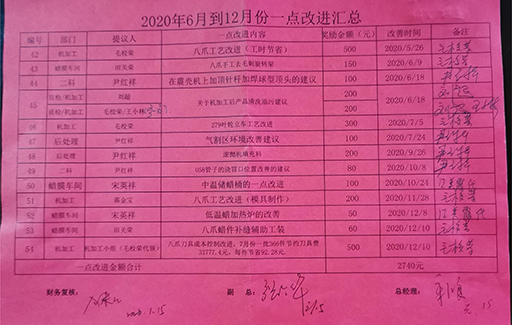 2020年6月到12月份一点改进汇总
编号 部门 提议人 一点改进内容 奖励金额（元） 改善时间 备注
42 机加工 毛松荣 八爪工艺改进（工时节省） 500 2020/5/26
43 蜡膜车间 田关荣 八爪手工去毛刺旋转架 150 2020/6/9
44 二科 尹红祥 在震壳机上加顶针杆加焊球型顶头的建议 100 2020/6/18
45 质检/机加工 刘超 关于机加工后产品清洗油污建议 200 2020/6/18
质检/机加工 毛松荣/王小林 200
46 机加工 毛松荣 279叶轮立车工艺改进 300 2020/7/5
47 后处理 尹红祥 气割区环境改善建议 100 2020/7/24
48 后处理 尹红祥 滚抛机填充料 200 2020/9/26
49 二科 尹红祥 058管子的浇冒口位置改善的建议 80 2020/10/8
50 蜡膜车间 宋英祥 中温储蜡桶的一点改进 100 2020/10/24
51 机加工 蒋金宝 八爪工艺改进（模具制作） 200 2020/11/28
52 蜡膜车间 宋英祥 低温蜡加热炉的改善 50 2020/12/8
53 蜡膜车间 田关荣 八爪蜡件补缝辅助工装 60 2020/12/10
54 机加工 机加工小组（毛松荣代领） 八爪刀具成本控制改进，7月份一批366件节约刀具费33777.4元，每件节省92.28元 500 2020/12/10
一点改进金额合计 2740元
财务复核： 副 总： 总经理：